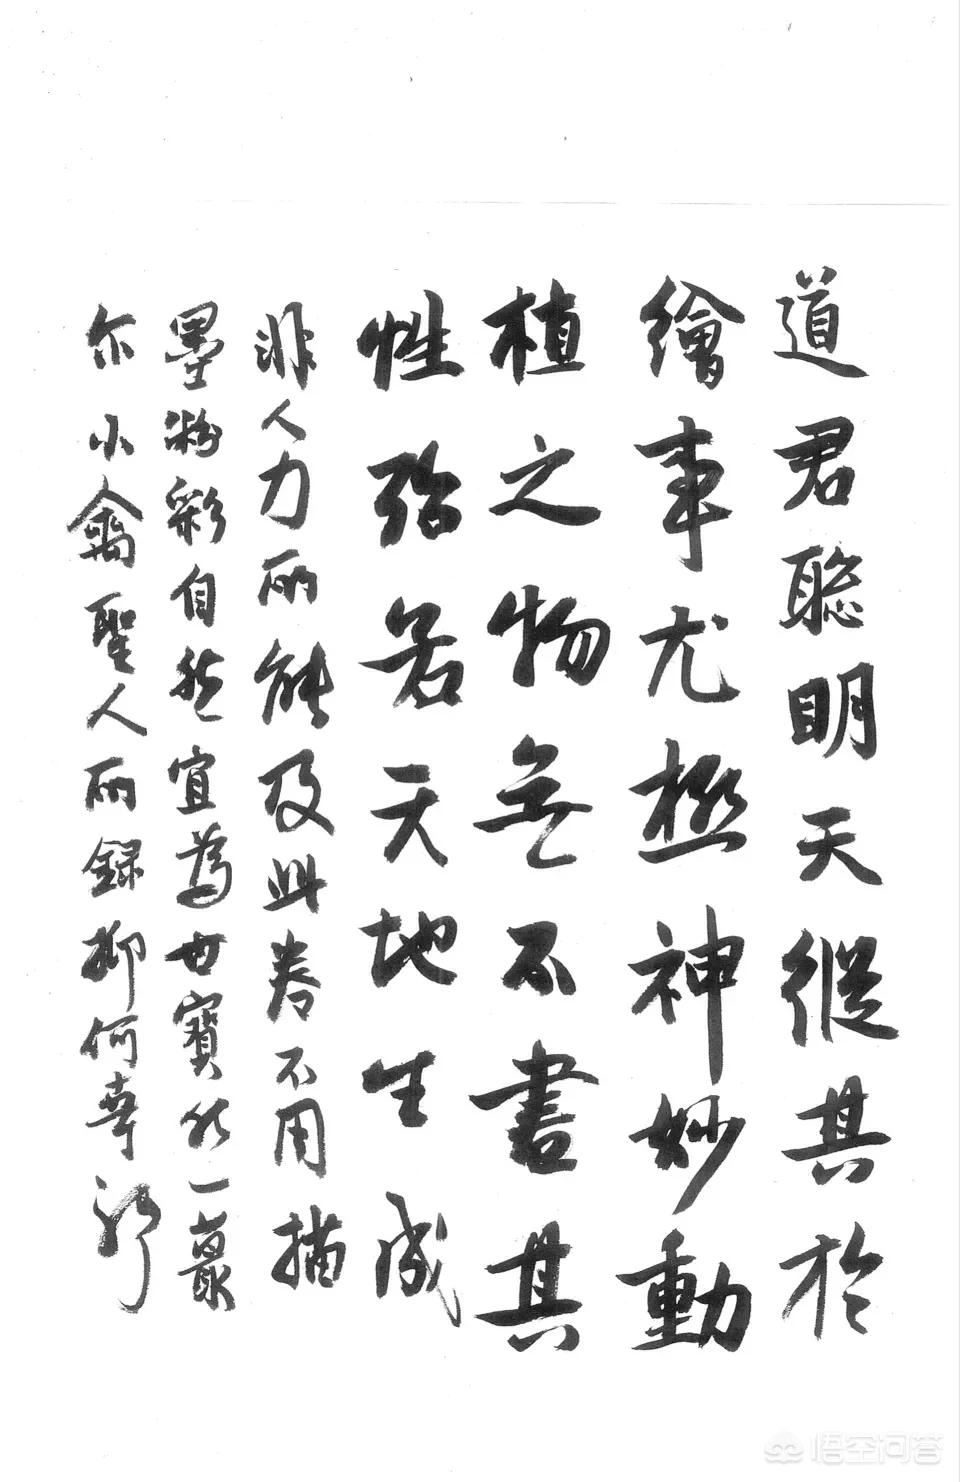 道君聰明天縱其於
繪事尤極神妙動
植之物無不書其
性殆若天地生成
非人力所能及此卷不用描
墨粉彩自然宜為世寶然一蕞
尔小禽聖人所録抑何幸耶
悟空问答